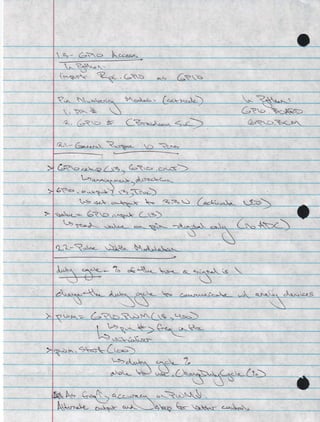 1.3 - GPIO Access
In Python:
import RPi.GPIO as GPIO
Pin Numbering Modes: (activate) In Python:
1. Pin # GPIO.BOARD
2. GPIO # (Broadcom SoC) GPIO.BCM
2.1 - General Purpose IO Pins
> GPIO.setup(18, GPIO.OUT)
↳ assignment, direction
> GPIO.output(18, True)
↳ set output to 3.3V (activate LED)
> value = GPIO.input(18)
↳ read value on pin → digital only (no ADC)
2.2 - Pulse Width Modulation
duty cycle = % of the time a signal is 1
change the duty cycle to communicate w/ analog devices
> pwm = GPIO.PWM(18, 400)
↳ pin #, freq in Hz
↳ initialize
> pwm.start(100)
↳ duty cycle %
able to use .ChangeDutyCycle(%)
As freq↑, accuracy on PWM↓
Alternate output and sleep for better control